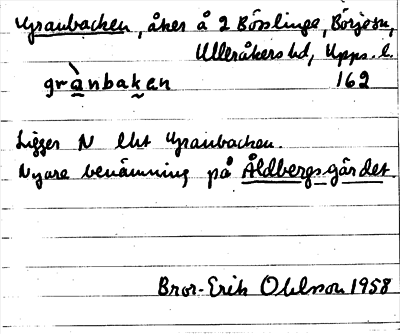 Granbacken, åker å 2 Börslinge, Börje sn,
Ulleråkers hd, Upps. l.
grànbaken 162
Ligger N Ekt Granbacken.
Nyare benämning på Åldbergsgärdet.
Bror-Erik Ohlsson 1958